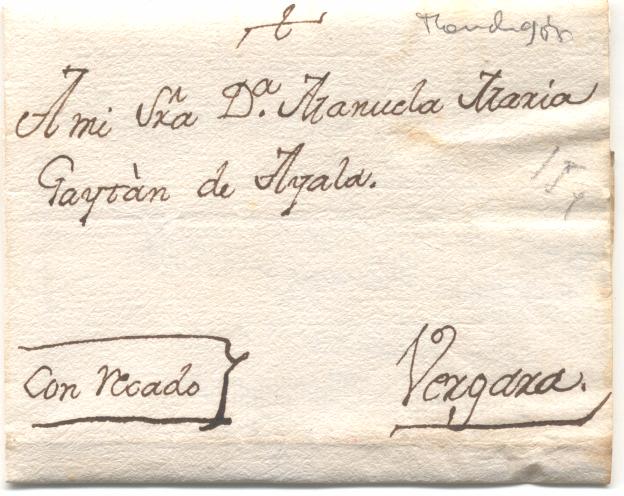 Mondragón
A mi Sra. Da. Manuela Maria
Gaytàn de Ayala.
Con recado
Vergara.